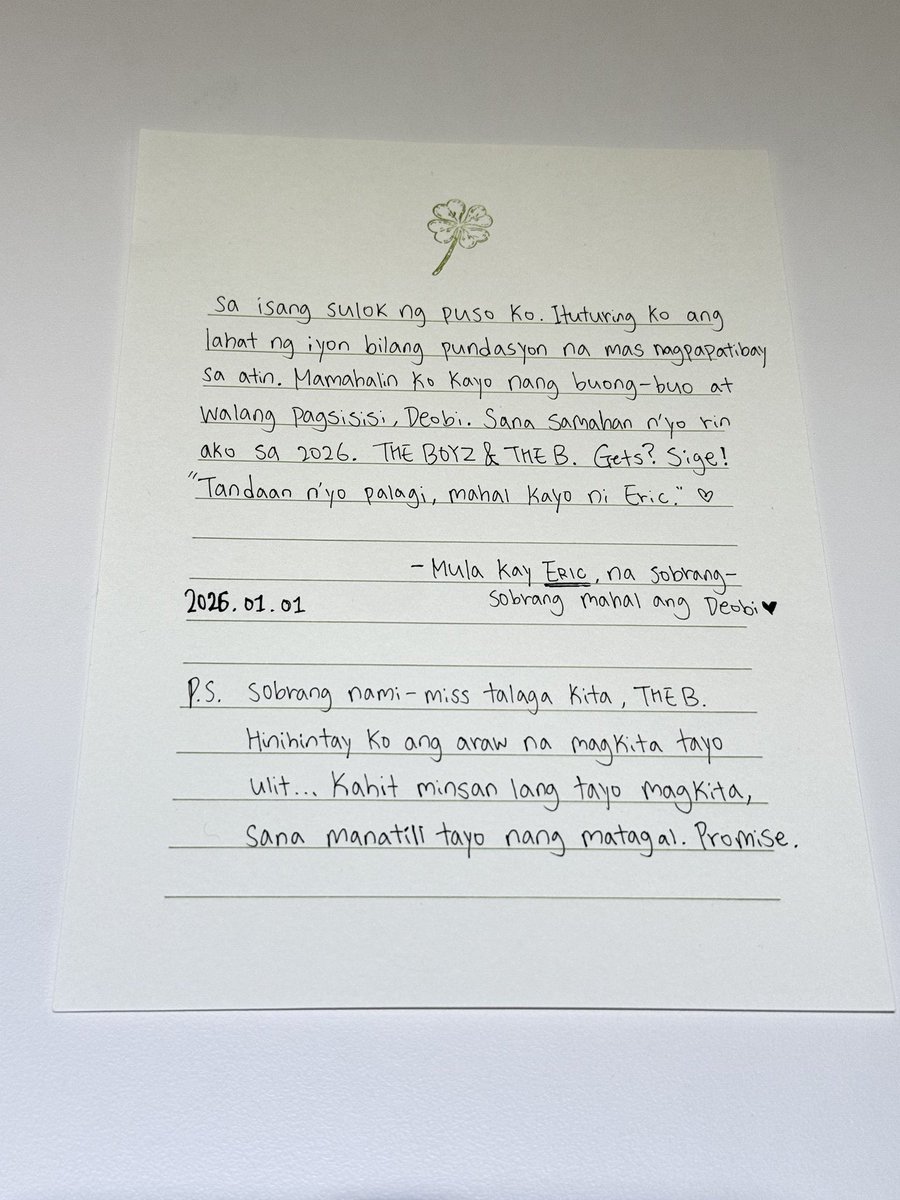 sa isang sulok ng puso ko. Ituturing ko ang
lahat ng iyon bilang pundasyon na mas nagpapatibay
sa atin. Mamahalin ko kayo nang buong-buo at
walang pagsisisi, Deobi. Sana samahan n'yo rin
ako sa 2026. THE BOYZ & THE B. Gets? Sige!
"Tandaan n'yo palagi, mahal kayo ni Eric." ♡
- Mula kay ERIC, na sobrang-
sobrang mahal ang Deobi ♥
2026.01.01
P.S. sobrang nami-miss talaga kita, THE B.
Hinihintay ko ang araw na magkita tayo
ulit... Kahit minsan lang tayo magkita,
sana manatili tayo nang matagal. Promise.